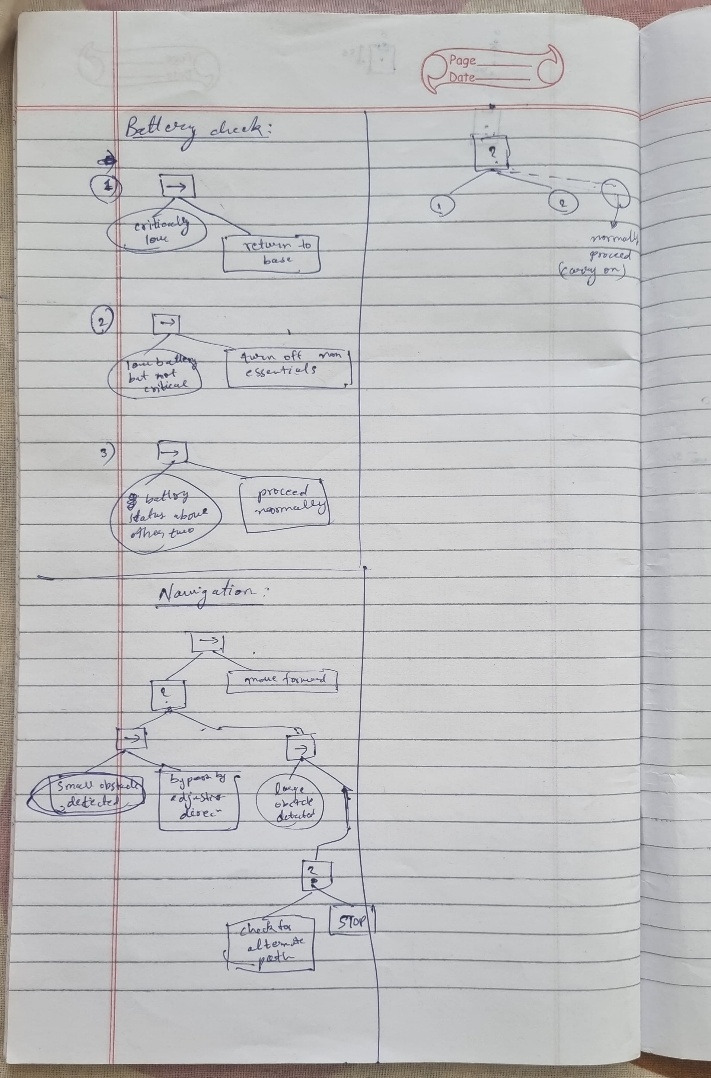 Page
Date
Battery check:
1
→
critically
low
return to
base
2
→
low battery
but not
critical
turn off non
essentials
3)
→
battery
status above
other two
proceed
normally
?
1
2
normally
proceed
(carry on)
Navigation:
→
move forward
?
→
→
small obstacle
detected
bypass by
large
detected
?
check for
alternate
path
STOP